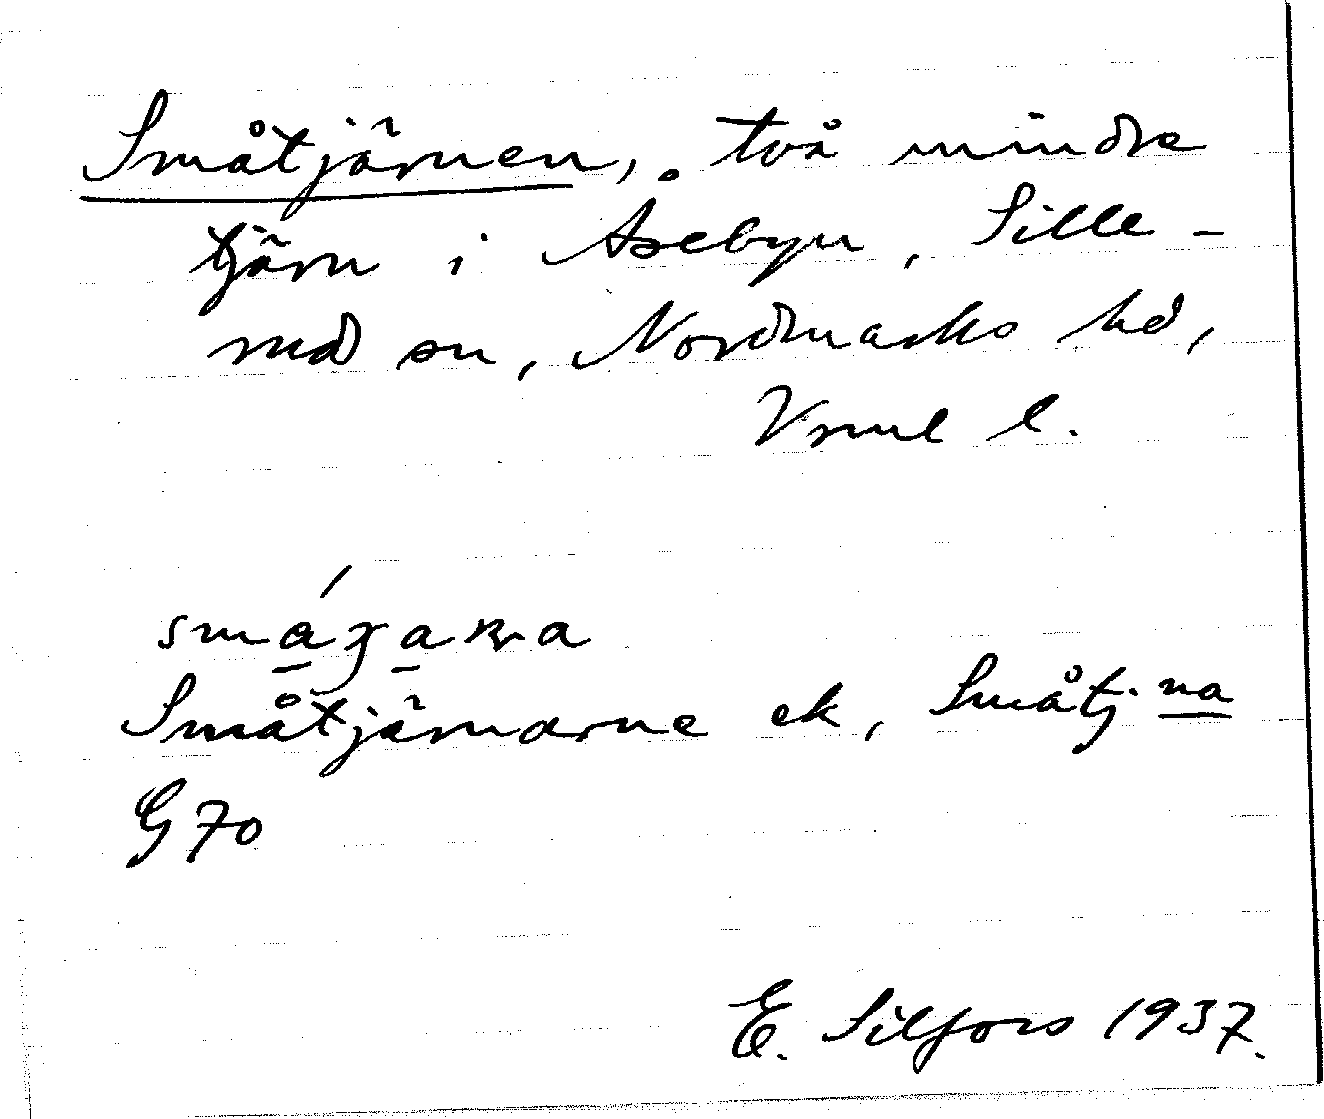 Småtjärnen, två mindre
tjärn i Åsebyn, Sille-
rud sn, Nordmarks hd,
Vrml l.
Småtjärnarne ek, Småtj. na
G 70
E. Silfors 1937.